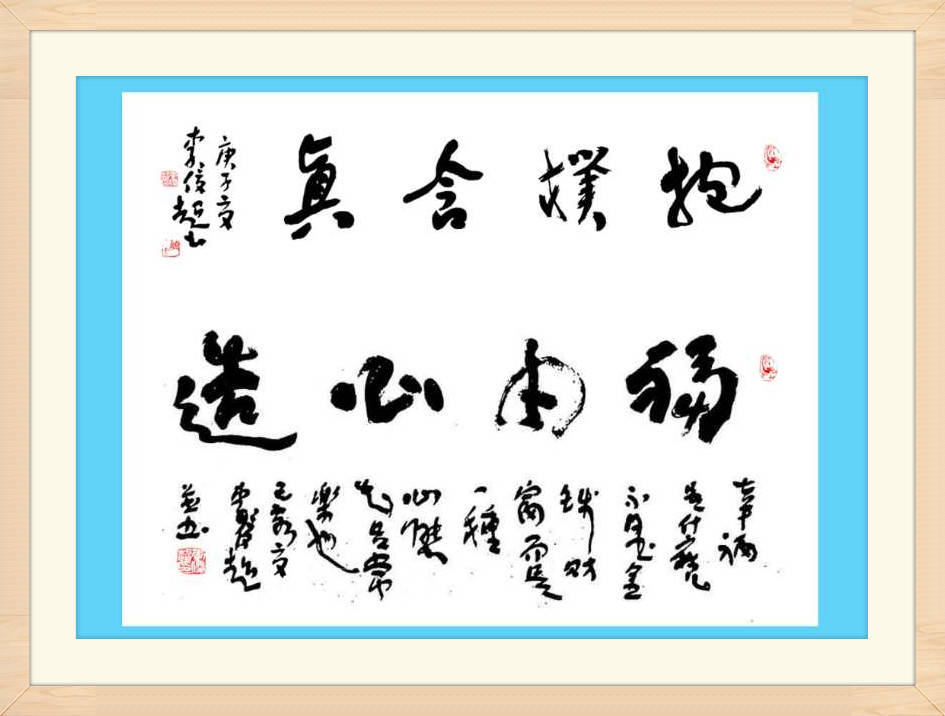 抱樸含眞
庚子夏
李
超书
福由心造
幸福
是什麼
不是金
錢財
富而是
一種
心態
知足常
樂也
己亥夏
李
超
並书